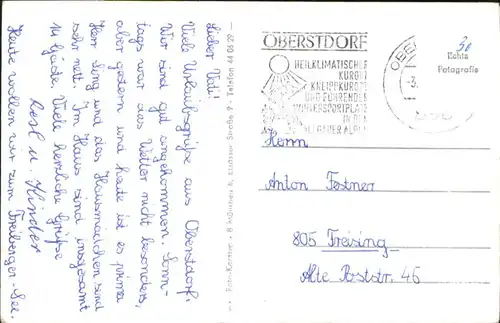 Lieber Vati!
Viele Urlaubsgrüße aus Oberstdorf.
Wir sind gut angekommen. Sonn-
tags war das Wetter nicht besonders,
aber gestern und heute ist es prima
Herr Jung und das Hausmädchen sind
sehr nett. Im Haus sind insgesamt
14 Gäste. Viele herzliche Grüße
Resl u. Kinder
Heute wollen wir zum Freiberger See.
8 München Straße 9 - Telefon 44 06 29
OBERSTDORF
HEILKLIMATISCHER
KURORT
KNEIPPKURORT
UND FÜHRENDER
WINTERSPORTPLATZ
IN DEN
ALLGÄUER ALPEN
Echte
Fotografie
Herrn
Anton Festner
805 Freising
Alte Poststr. 46